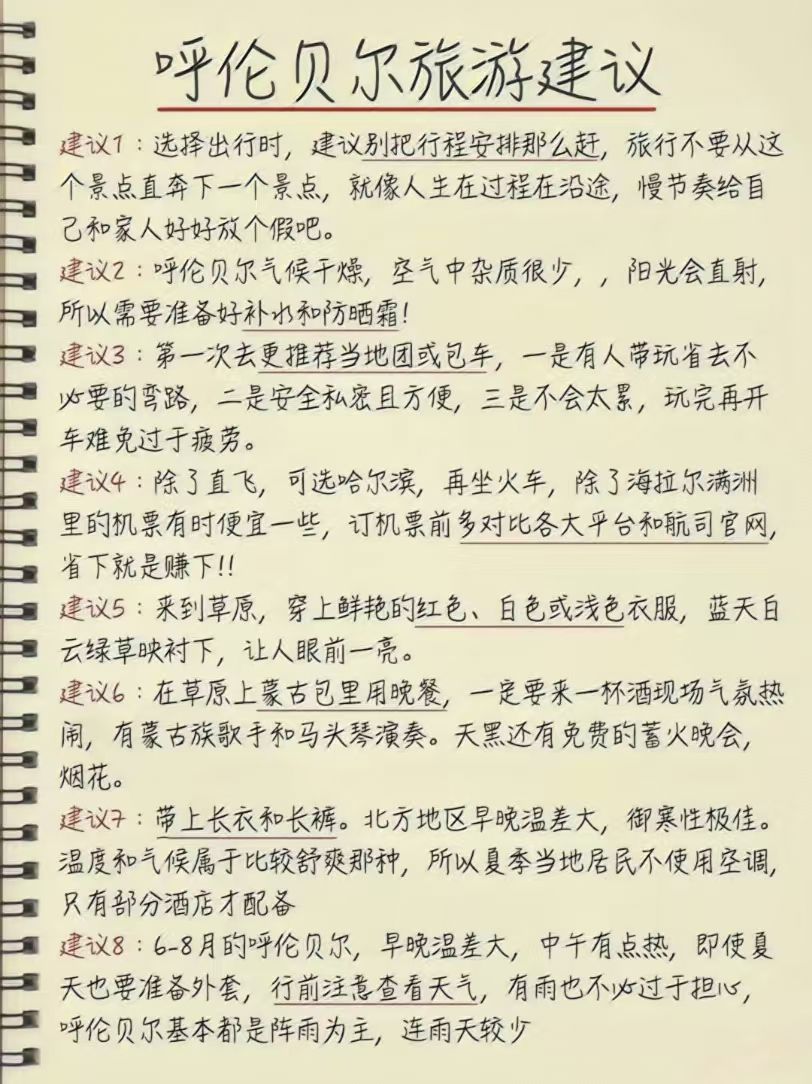 呼伦贝尔旅游建议
建议1：选择出行时，建议别把行程安排那么赶，旅行不要从这
个景点直奔下一个景点，就像人生在过程在沿途，慢节奏给自
己和家人好好放个假吧。
建议2：呼伦贝尔气候干燥，空气中杂质很少，，阳光会直射，
所以需要准备好补水和防晒霜！
建议3：第一次去更推荐当地团或包车，一是有人带玩省去不
必要的弯路，二是安全私密且方便，三是不会太累，玩完再开
车难免过于疲劳。
建议4：除了直飞，可选哈尔滨，再坐火车，除了海拉尔满洲
里的机票有时便宜一些，订机票前多对比各大平台和航司官网，
省下就是赚下！！
建议5：来到草原，穿上鲜艳的红色、白色或浅色衣服，蓝天白
云绿草映衬下，让人眼前一亮。
建议6：在草原上蒙古包里用晚餐，一定要来一杯酒现场气氛热
闹，有蒙古族歌手和马头琴演奏。天黑还有免费的蓄火晚会，
烟花。
建议7：带上长衣和长裤。北方地区早晚温差大，御寒性极佳。
温度和气候属于比较舒爽那种，所以夏季当地居民不使用空调，
只有部分酒店才配备
建议8：6-8月的呼伦贝尔，早晚温差大，中午有点热，即使夏
天也要准备外套，行前注意查看天气，有雨也不必过于担心，
呼伦贝尔基本都是阵雨为主，连雨天较少